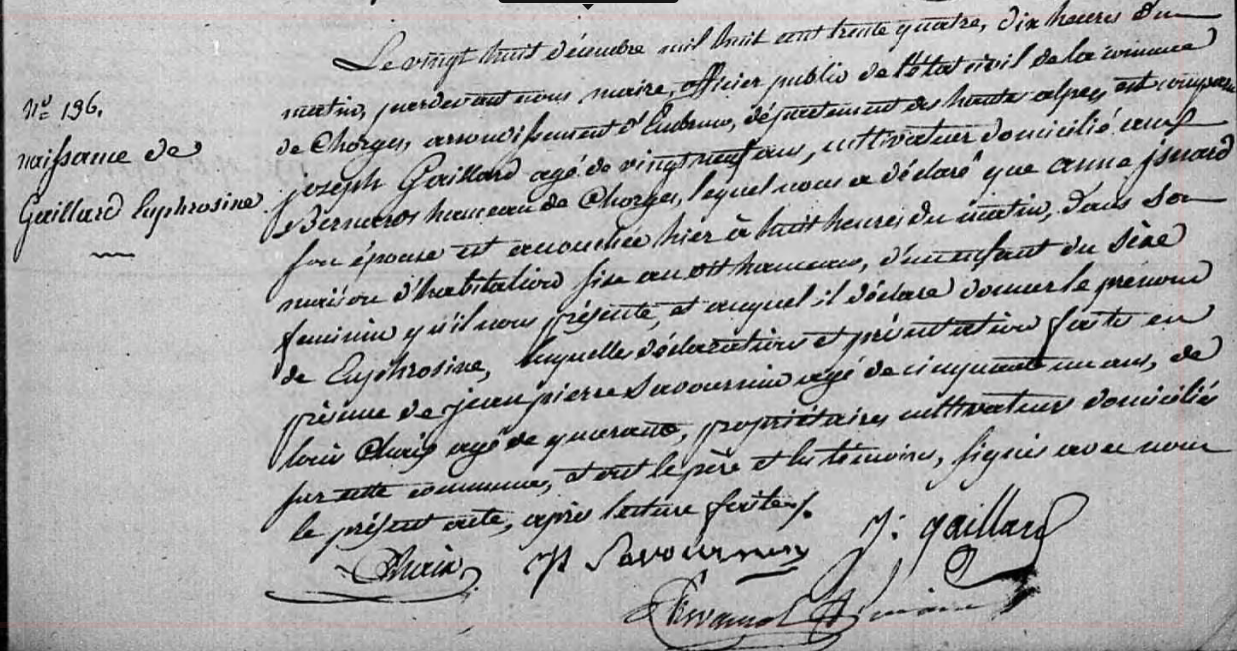 N.º 196.
naissance de
Gaillard Euphrosine
Le vingt huit décembre mil huit cent trente quatre, dix heures du
matin, pardevant nous maire, officier public de l'état civil de la commune
de Chorges, arrondissement d'Embrun, département des hautes alpes, est comparu
joseph Gaillard agé de vingt neuf ans, cultivateur domicilié aux
Bernards hameau de Chorges, lequel nous a déclaré que anne isnard
son épouse est accouchée hier à huit heures du matin, dans son
maison d'habitation sise au dit hameau, d'un enfant du sèxe
feminin qu'il nous présente, et auquel il déclare donner le prénom
de Euphrosine, lesquelles déclaration et présentation faite en
présence de jean pierre Savournin agé de cinquante un ans, de
louis Chaix agé de quarante, propriétaires cultivateurs domiciliés
sur cette commune, et ont le père et les témoins, signés avec nous
le présent acte, après lecture faite.
Chaix JP Savournin J: gaillard